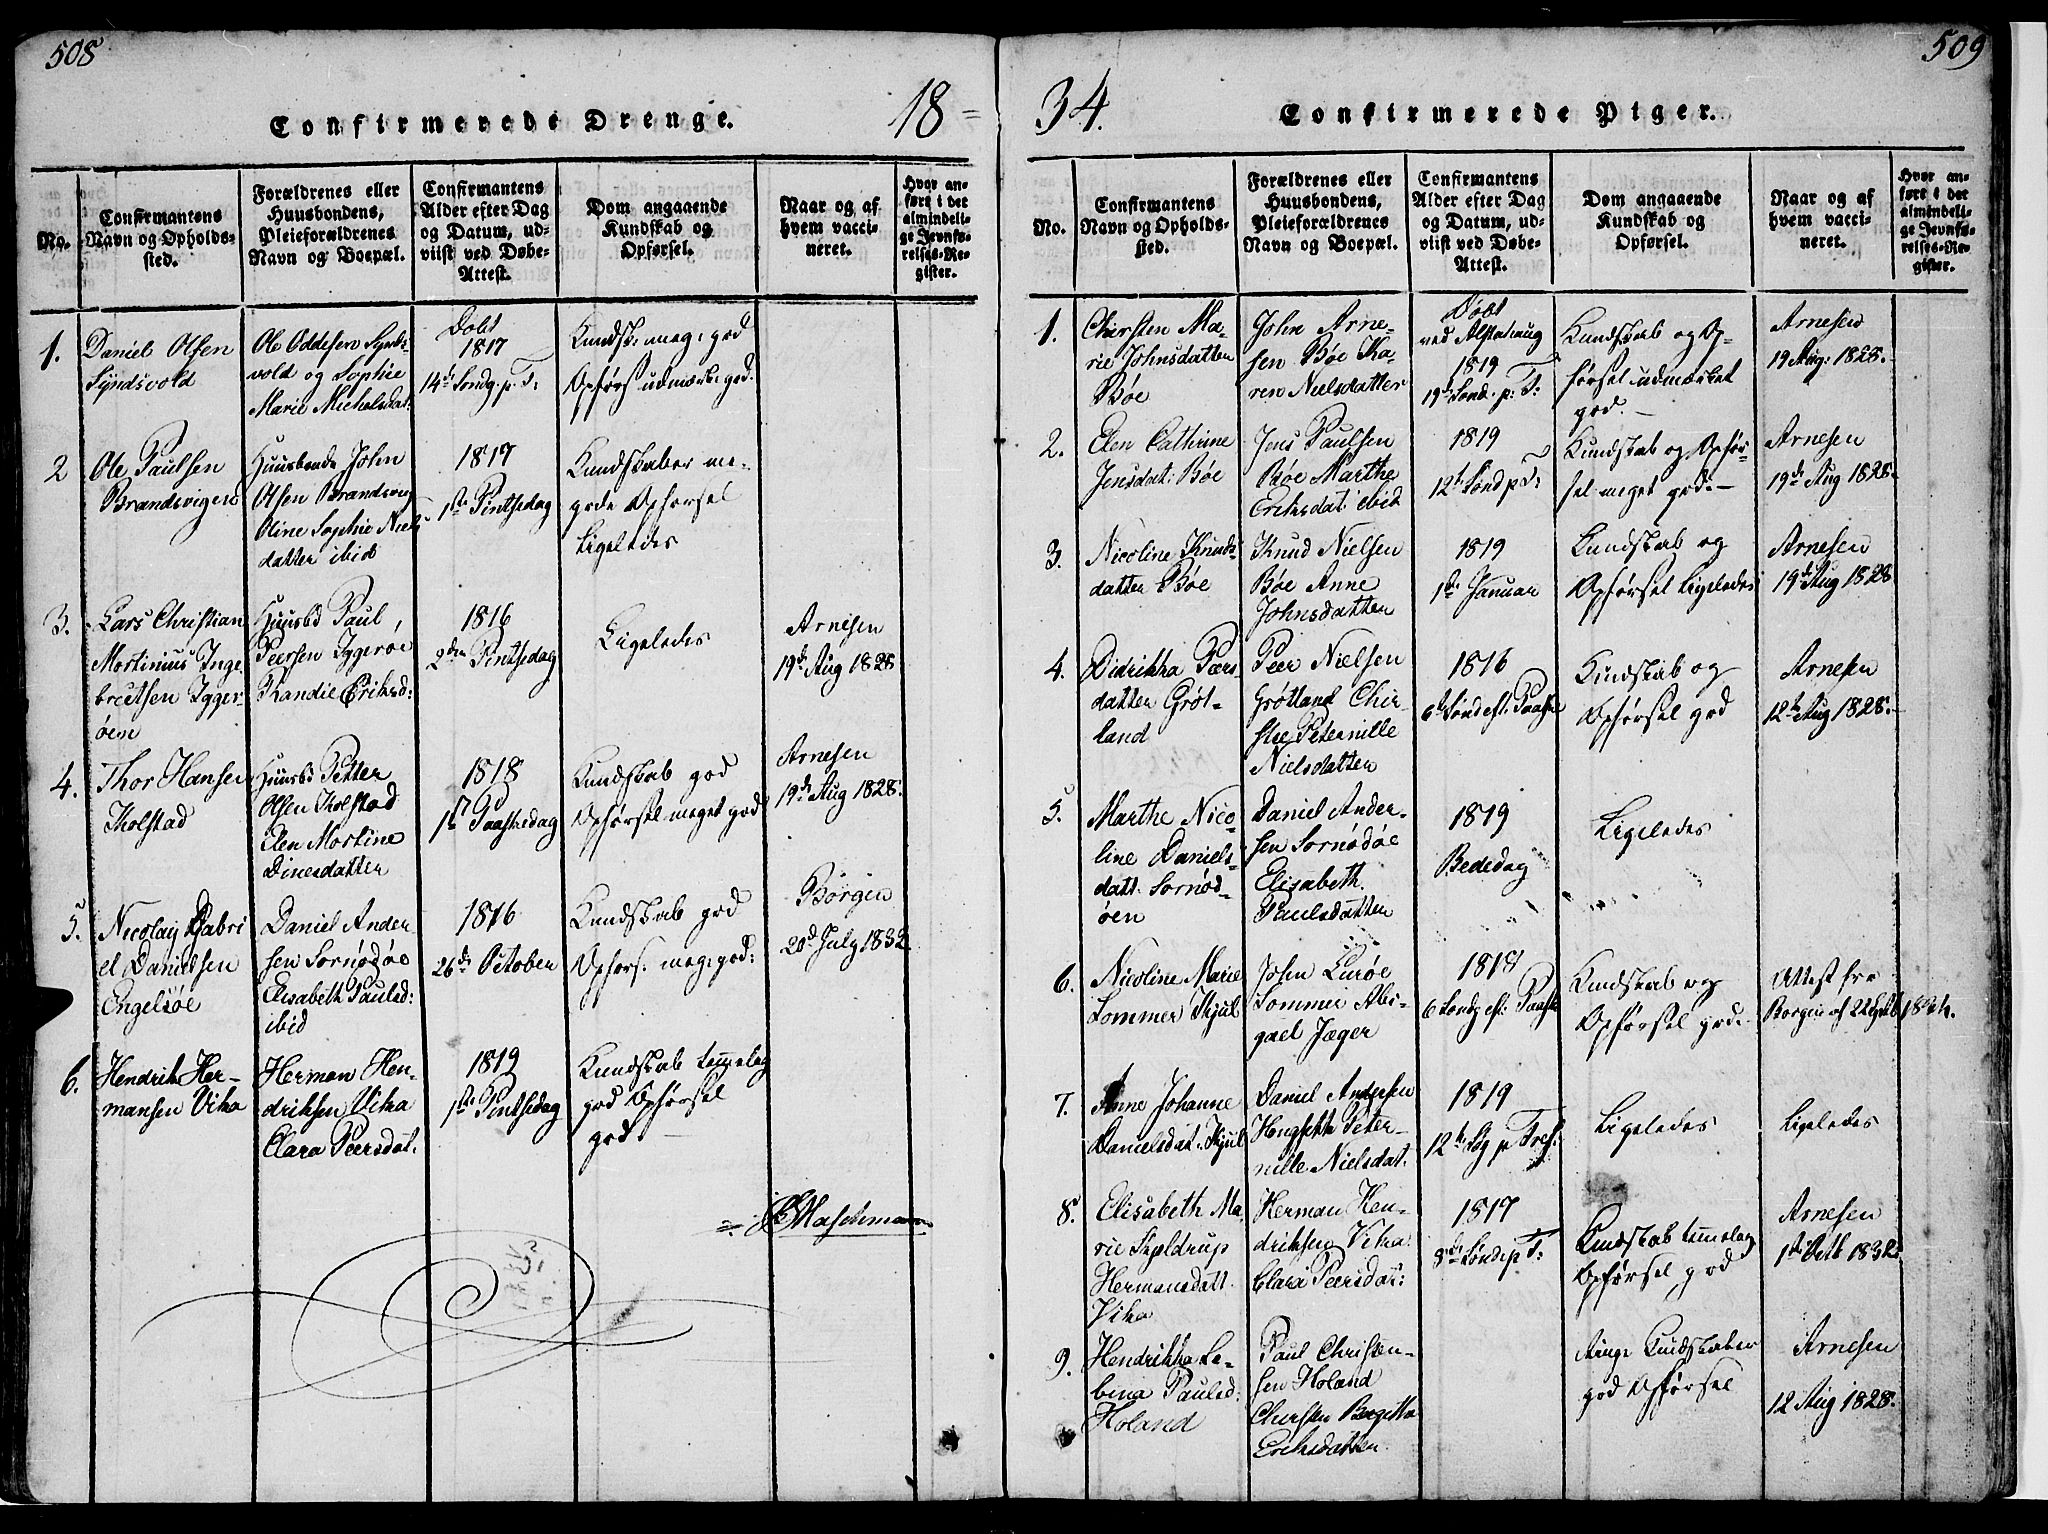 508
Confirmerede Drenge.
18=
No.
Confirmantens
Navn og Opholds-
sted.
Forældrenes eller
Huusbondens,
Pleieforældrenes
Navn og Boepæl.
Confirmantens
Alder efter Dag
og Datum, ud-
viist ved Døbe-
Attest.
Dom angaaende
Kundskab og
Opførsel.
Naar og af
hvem vacci-
neret.
Hvor an-
ført i det
almindeli-
ge Jevnfø-
relses-Re-
gister.
1.
Daniel Olsen
Syndsvold
Ole Oddesen Synds-
vold og Sophie
Marie Michelsdat:
Døbt
1817
14de Søndg. p. T:
Kundsk: meg: god
Opførs udmærk: god.
2
Ole Paulsen
Brandsvigen
Huusbonde John
Olsen Brandsvig
Oline Sophie Niels
datter ibid
1817
1ste Pintsedag
Kundskaber me-
gode Opførsel
Ligeledes
3.
Lars Christian
Mortinius Inge
bretsen Ygger-
øen
Huusbd Paul
Peersen Yggerøe
Randie Eriksd:
1816
2den Pintsedag
Ligeledes
Arnesen
19de Aug 1828
4.
Thor Hansen
Tholstad
Huusbd Petter
Olsen Tholstad
Elen Mortine
Dinesdatter
1818
1ste Paaskedag
Kundskab god
Opførsel meget god
Arnesen
19de Aug 1828.
5.
Nicolay Gabri
el Danielsen
Engelsøe
Daniel Ander
sen Sornødøe
Elisabeth Paulsd:
ibid
1816
26de October
Kundskab god
Opførs: meg: god:
Børgen
20d July 1832
6.
Hendrik Her-
mansen Vika
Herman Hen-
driksen Vika
Clara Peersdat.
1819
1ste Pintsedag
Kundskab temmelag
god Opførsel
god. -
Maschmann
509
34.
Confirmerede Piger.
No.
Confirmantens
Navn og Opholds-
sted.
Forældrenes eller
Huusbondens,
Pleieforældrenes
Navn og Boepæl.
Confirmantens
Alder efter Dag
og Datum, ud-
viist ved Døbe-
Attest.
Dom angaaende
Kundskab og
Opførsel.
Naar og af
hvem vacci-
neret.
Hvor an-
ført i det
almindeli-
ge Jevnfø-
relses-Re-
gister.
1.
Chirsten Ma-
rie Johnsdatter
Bøe
John Arne-
sen Bøe Ka-
ren Nielsdatter
Døbt
ved Alstahaug
1819
19de Sønd. p: T:
Kundskab og Op-
førsel udmærket
god. -
Arnesen
19 Aug: 1828.
2.
Elen Cathrine
Jensdat: Bøe
Jens Paulsen
Bøe Marthe
Eriksdat: ibid
1819
12te Sønd p T:
Kundskab og Opfør-
sel meget god. -
Arnesen
19de Aug 1828.
3.
Nicoline Knuds-
datter Bøe
Knud Nielsen
Bøe Anne
Johnsdatter
1819
1ste Januar
Kundskab og
Opførsel Ligeledes
Arnesen
19de Aug 1828
4.
Didrikka Pærs-
datter Grøt-
land
Peer Nielsen
Grøtland Chir-
stie Peternille
Nielsdatter
1816
6te Sønd eft: Paaske
Kundskab og
Opførsel god
Arnesen
12te Aug 1828.
5.
Marthe Nico-
line Daniels-
datt. Sornød-
øen
Daniel Ander-
sen Sornødøe
Elisabeth
Paulsdatter
1819
Bededag
Ligeledes
6.
Nicoline Marie
Sommer Kjul
John Lurøe
Sommer Abi-
gael Jæger
1818
6 Søndg eft: Paaske
Kundskab og
Opførsel god.
Attest fra
Borgen af 1834.
7.
Anne Johanne
Danielsdat: Kjul
Daniel Andersen
Peter-
nille Nielsdat.
1819
12te Sdg p Tref:
Ligeledes
Ligeledes
8.
Elisabeth Ma
rie Skjeldrup
Hermansdatt.
Vika
Herman Hen-
driksen Vika.
Clara Peersdat:
1817
8de Sønd: p T:
Kundskab temmelag
Opførsel god
Arnesen
1ste Octb 1832.
9.
Hendrikka Le-
bina Paulsd:
Holand
Paul Christen-
sen Holand
Chirsten Birgitta
Eriksdatter.
Ringe Kundskaber
god Opførsel
Arnesen
12 Aug 1828.